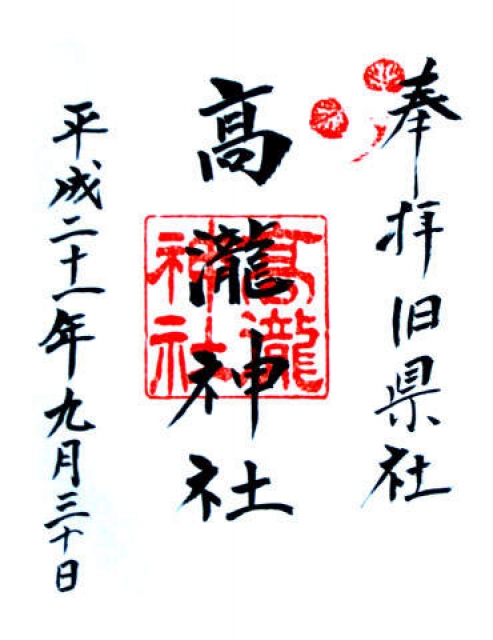 奉拝旧県社
髙瀧神社
髙瀧神社
平成二十一年九月三十日